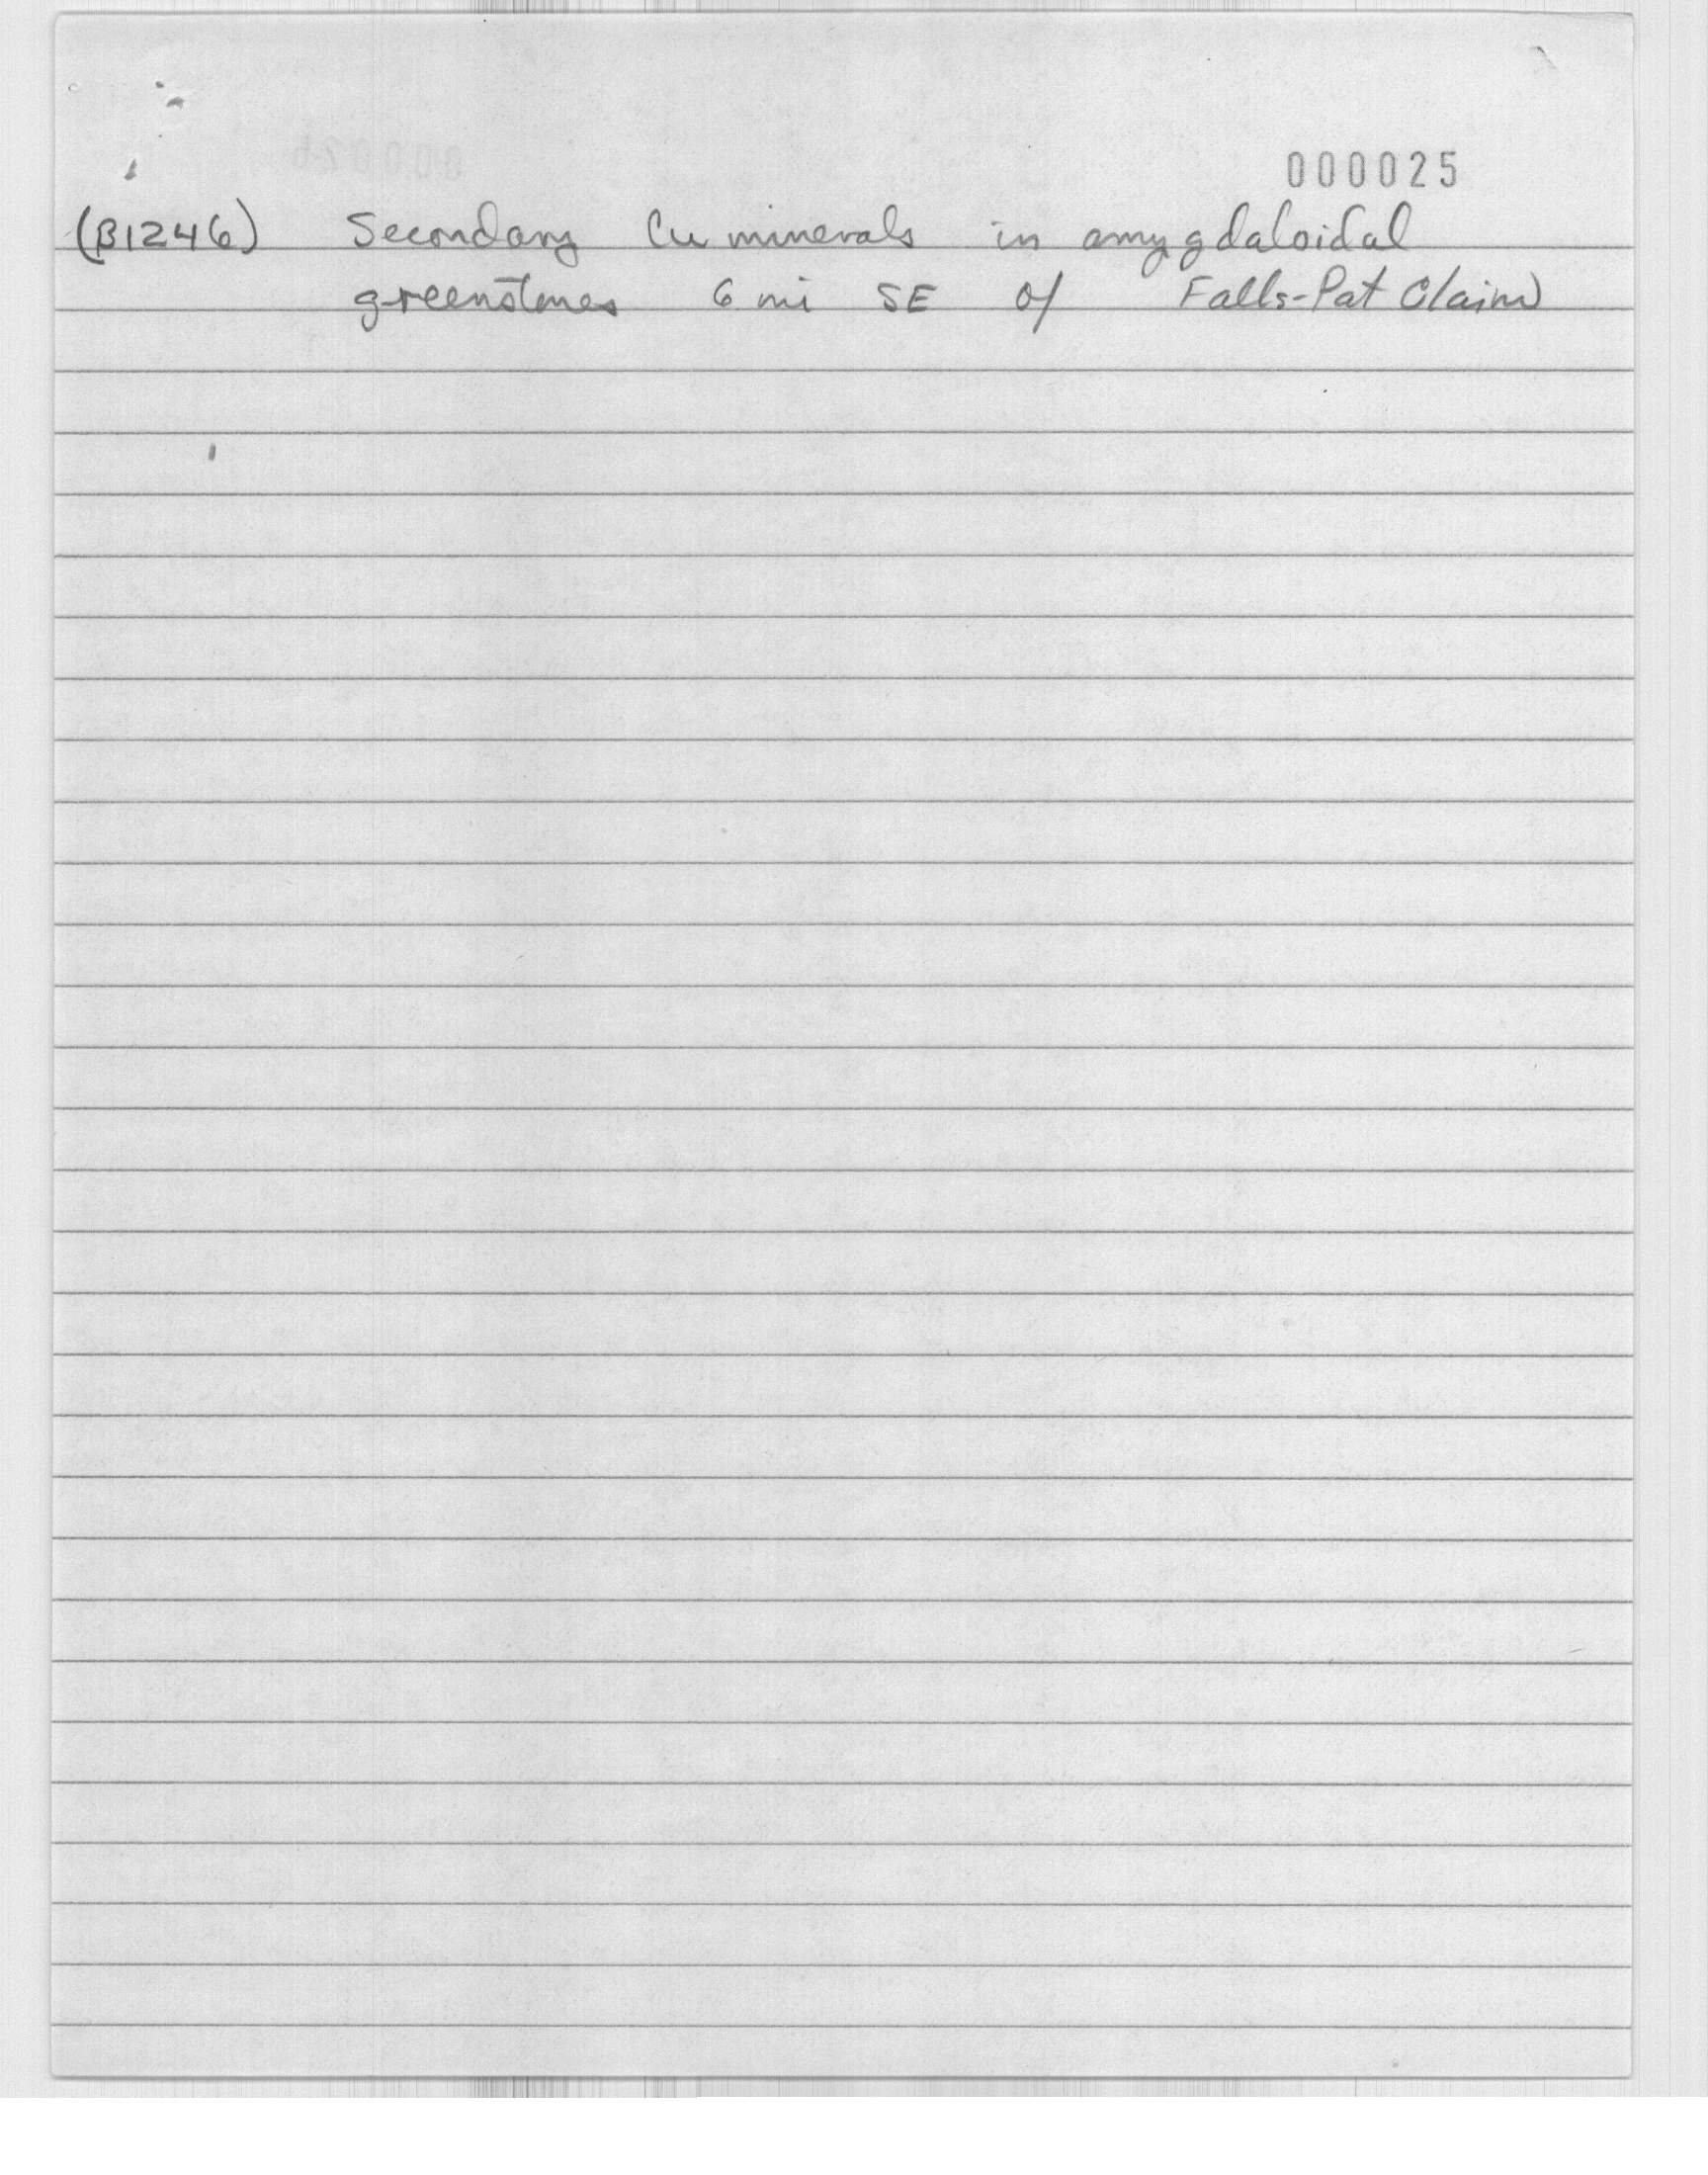 000025
(B1246) Secondary Cu minerals in amygdaloidal
greenstones 6 mi SE of Falls-Pat Claim